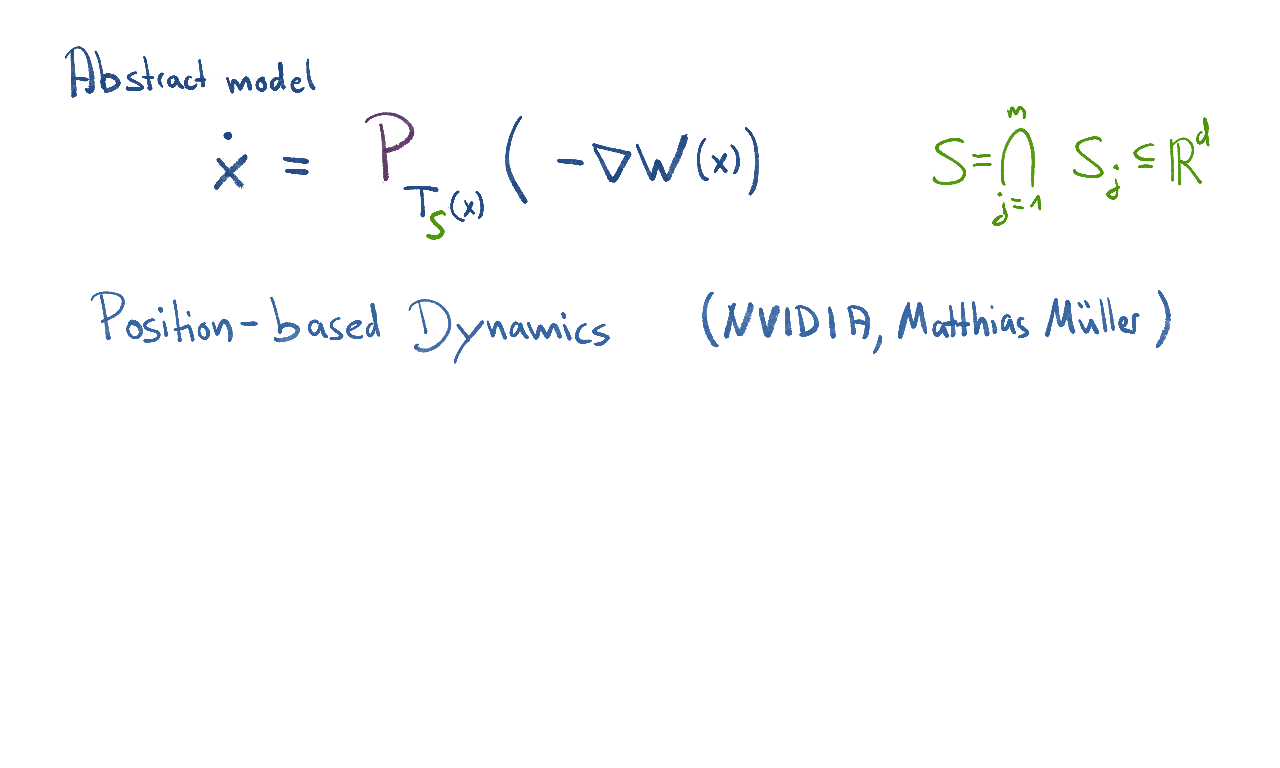 Abstract model
ẋ = P_{T_S(x)} ( -∇W(x) )    S = ⋂_{j=1}^{m} S_j ⊆ ℝ^d
Position-based Dynamics (NVIDIA, Matthias Müller)